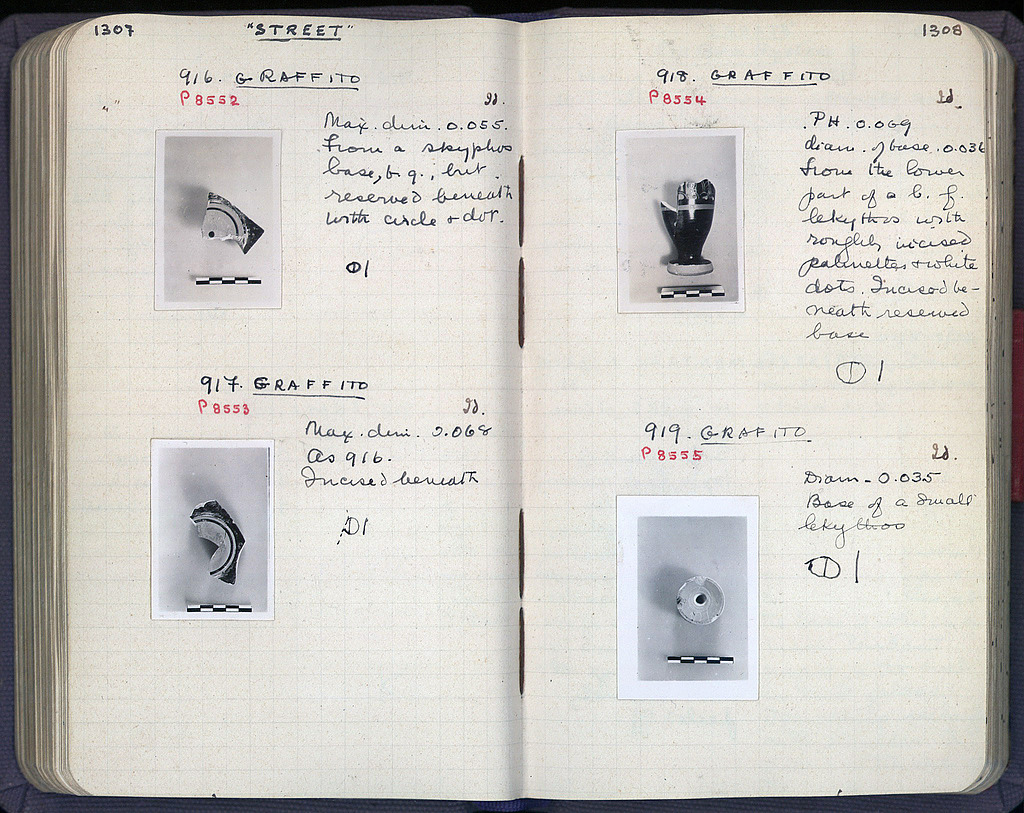 1307
"STREET"
916. GRAFFITO
P 8552
2d.
Max. dim. 0.055.
From a skyphos
base, b. g., but
reserved beneath
with circle + dot.
1
917. GRAFFITO
P 8553
2d.
Max. dim. 0.068
As 916.
Incised beneath
1
1308
918. GRAFFITO
P 8554
2d.
PH. 0.069
diam. of base. 0.036
From the lower
part of a b. f.
lekythos with
roughly incised
palmettes + white
dots. Incised be-
neath reserved
base
1
919. GRAFITO
P 8555
2d.
Diam - 0.035
Base of a small
lekythos
1